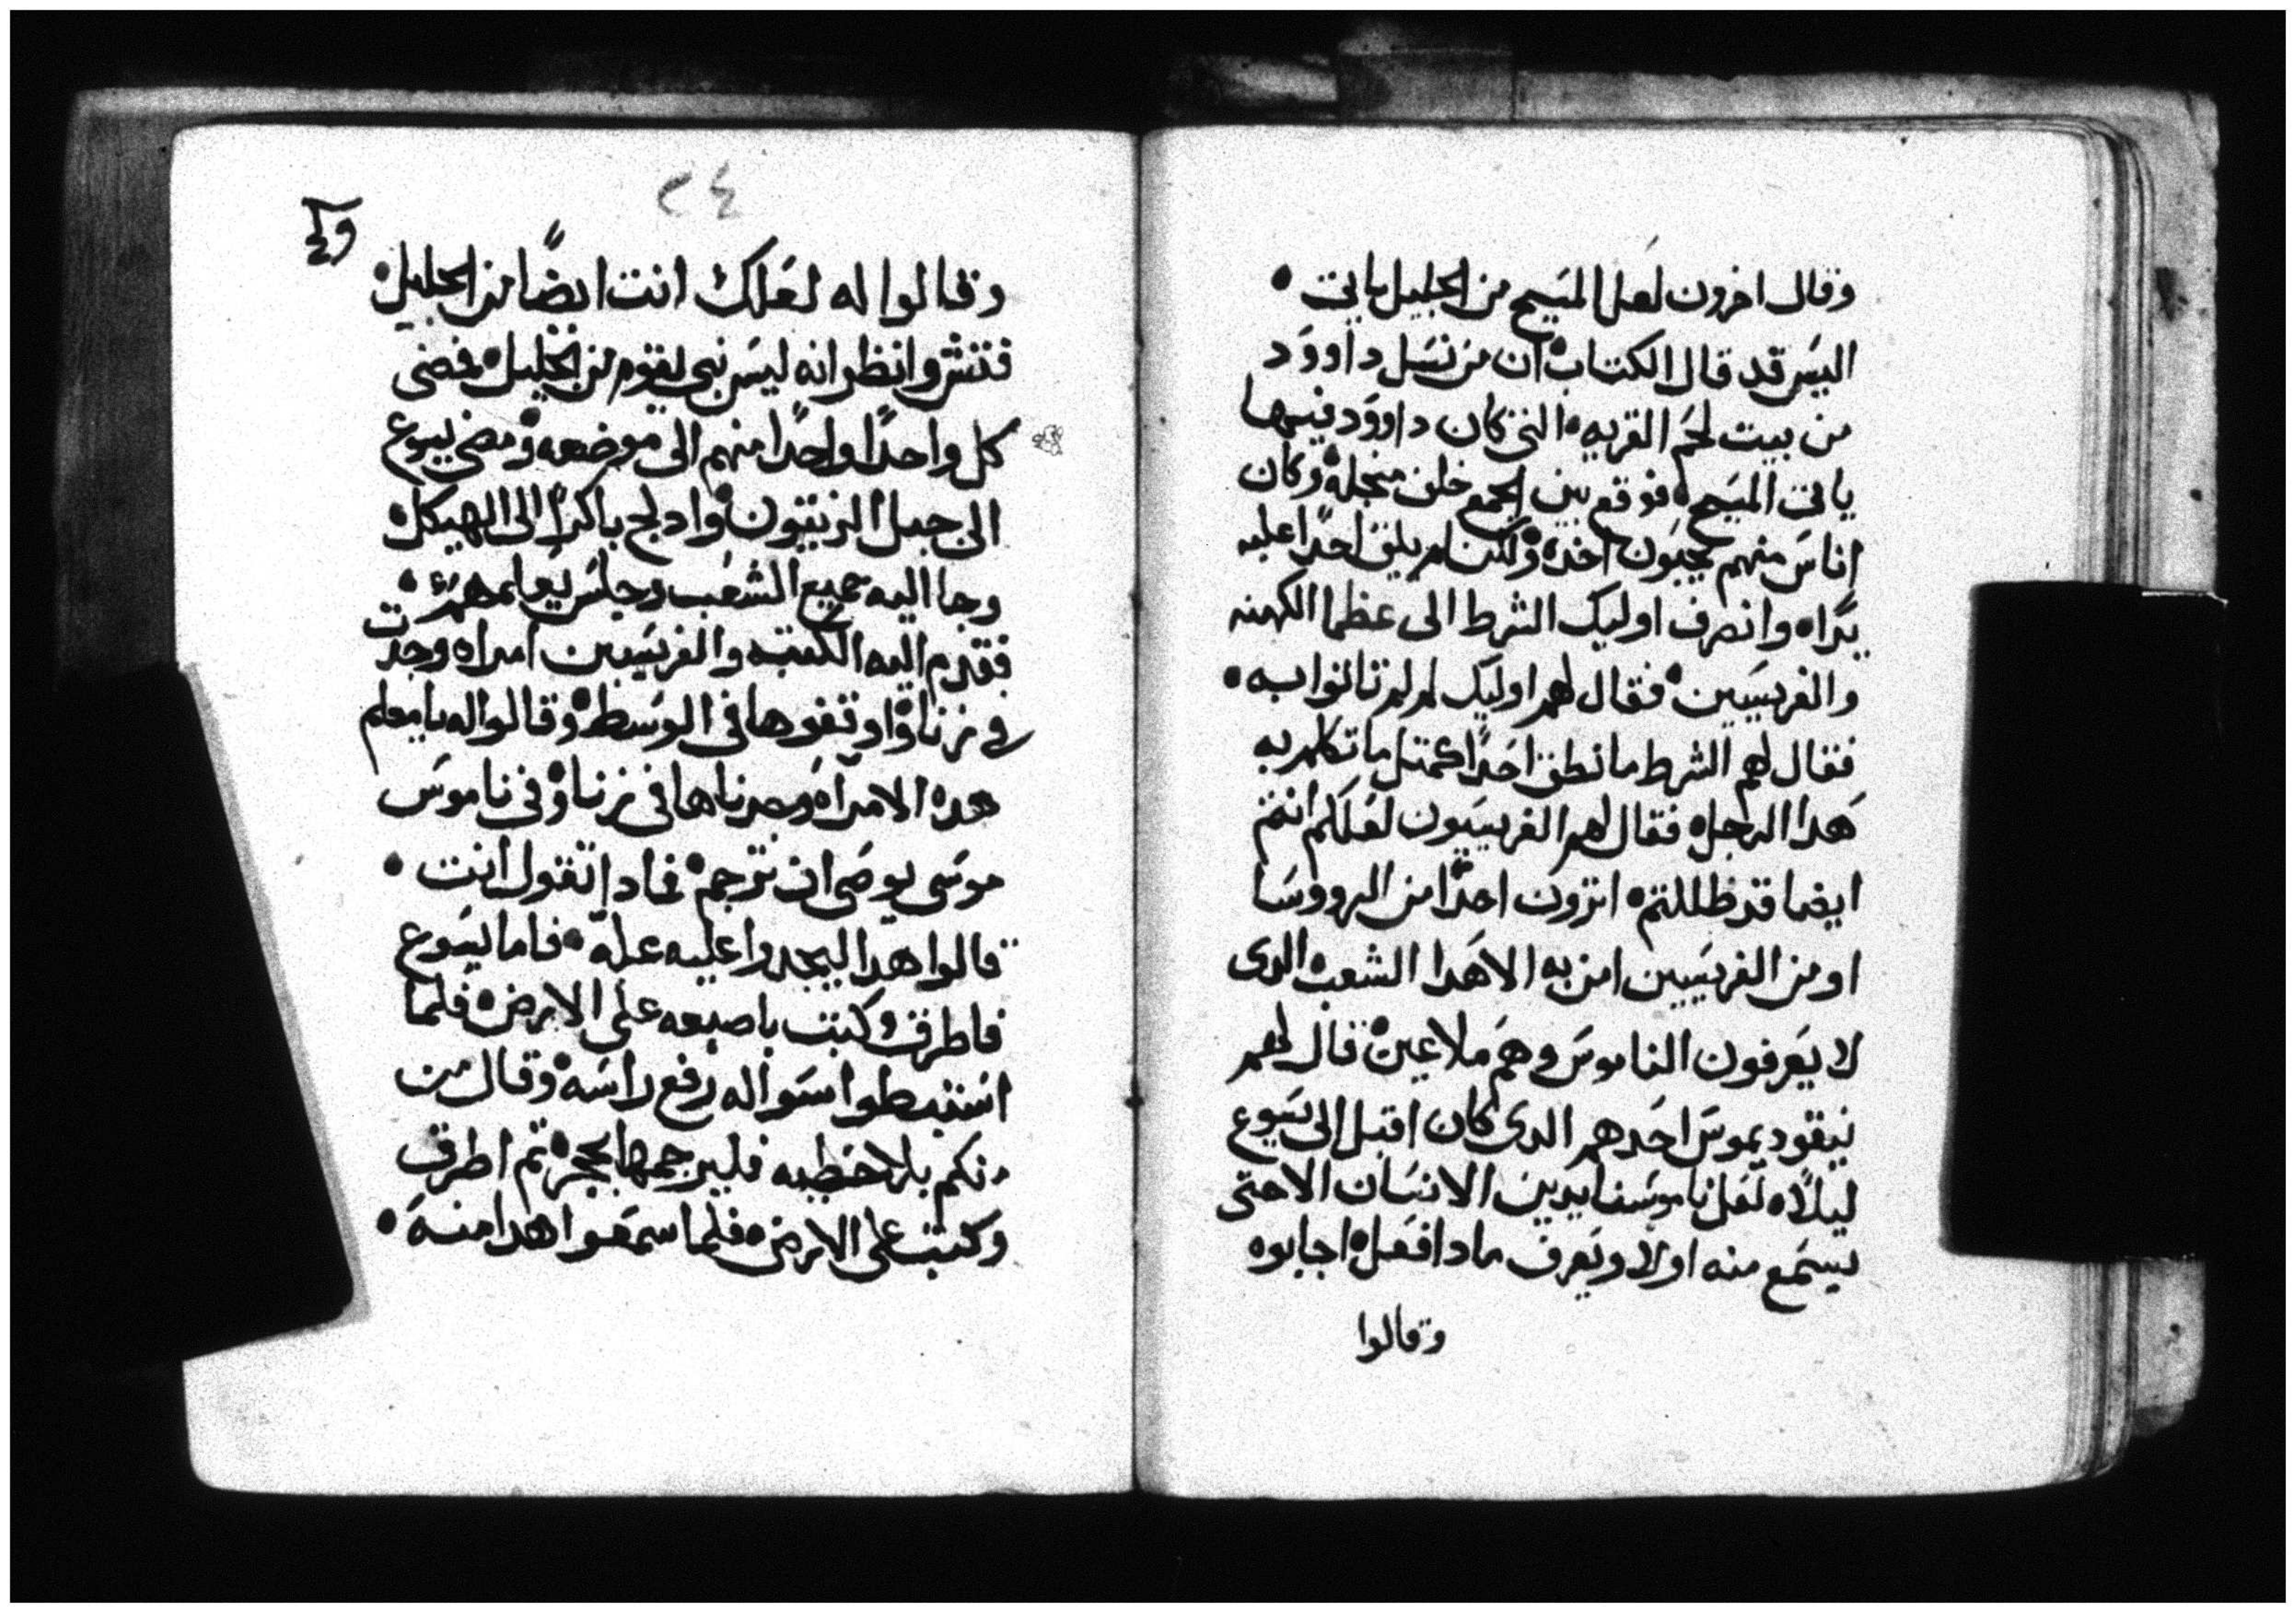 وقال اخرون لعل المسيح من الجليل ياتى •
اليس قد قال الكتاب ان من نسل داوود
من بيت لحم القريه التى كان داوود فيها
ياتى المسيح فوقع بين الجمع خلف منجله وكان
اناس منهم يحبون اخده ولكن لم يلق احدًا عليه
يدًا وانصرف اوليك الشرط الى عظما الكهنه
والفريسيين فقال لهم اوليك لم لم تاتوا به •
فقال لهم الشرط ما نطق احدًا كمتل ما تكلم به
هدا الرجل فقال لهم الفريسيون لعلكم انتم
ايضا قد ظللتم اترون احدًا من الرووسا
او من الفريسيين امن به الا هدا الشعب الدى
لا يعرفون الناموس وهم ملاعين قال لهم
نيقوديموس احدهم الدى كان اقبل الى يسوع
ليلًا لعل ناموسنا يدين الانسان الا حتى
يستمع منه اولا ويعرف مادا فعل اجابوه
وقالوا
٢٤
وقالوا له لعلك انت ايضًا من الجليل
فتش وانظر انه ليس نبى يقوم من الجليل فمضى
كل واحدًا واحدًا منهم الى موضعه ومضى يسوع
الى جبل الزيتون وادلج باكرًا الى الهيكل
وجا اليه جميع الشعب وجلس يعلمهم •
فقدم اليه الكتبه والفريسيين امراه وجدت
فى زنا واوقفوها فى الوسط وقالوا له يا معلم
هده الامراه وجدناها فى زنا وفى ناموس
موسى يوصى ان ترجم فمادا تقول انت •
قالوا هدا ليجدوا عليه عله فاما يسوع
فاطرق وكتب باصبعه على الارض فلما
استبطوا سواله رفع راسه وقال من
منكم بلا خطيه فليرجمها بحجر تم اطرق
وكتب على الارض فلما سمعوا هدا منه •